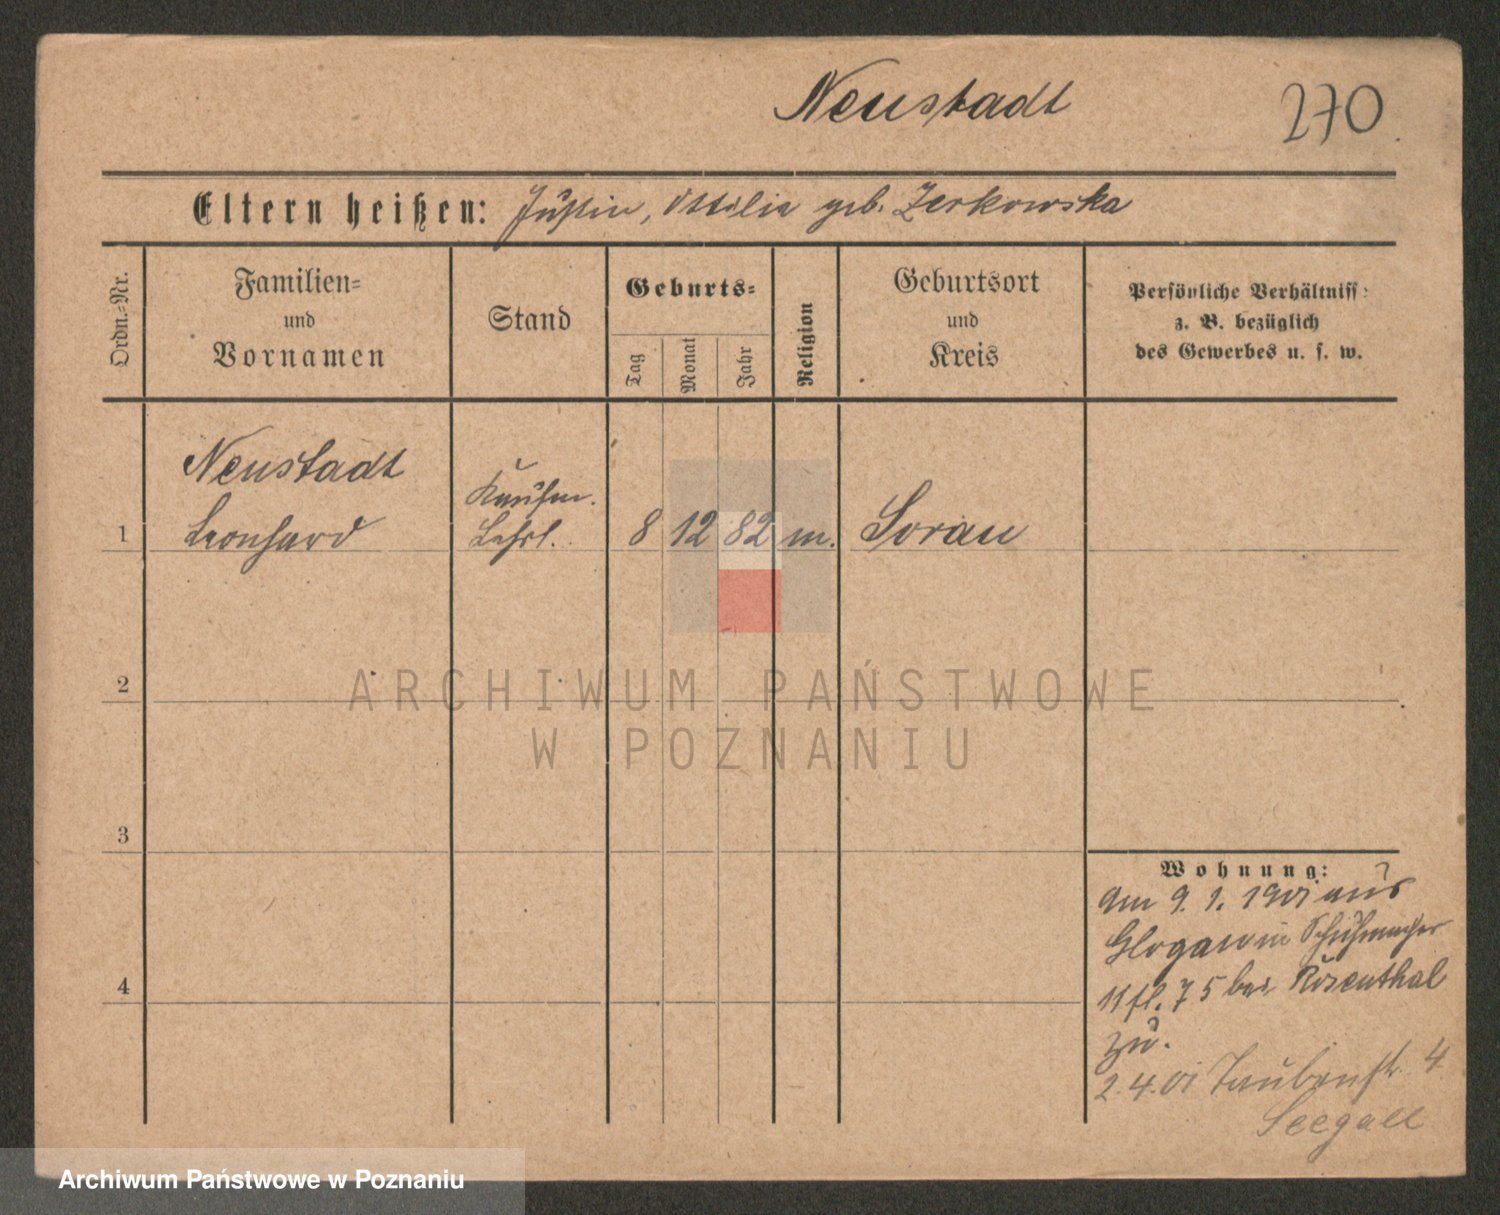 Neustadt
270
Eltern heißen: Justin, Ottilie geb. Zerkowska
Ordn.-Nr.
Familien-
und
Vornamen
Stand
Geburts-
Tag
Monat
Jahr
Religion
Geburtsort
und
Kreis
Persönliche Verhältniss
z. B. bezüglich
des Gewerbes u. s. w.
Neustadt
Kaufm.
1 Leonhard Lehrl. 8 12 82 m. Sorau
2
ARCHIWUM PAŃSTWOWE
W POZNANIU
3
Wohnung:
Am 9. 1. 1901 aus
Glogau in Schuhmacher
11 fl. 75 bei Rosenthal
4
zu.
2.4.01 Taubenstr. 4
Seegall
Archiwum Państwowe w Poznaniu